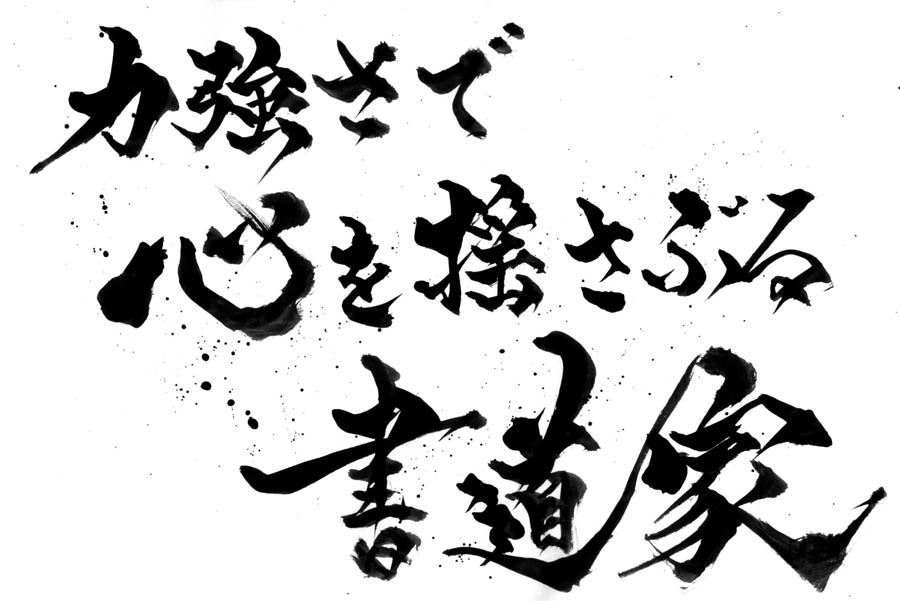 力強さで
心を揺さぶる
書道家